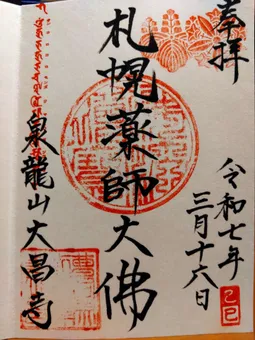 奉拝
札幌薬師大佛
令和七年
三月十六日
己巳
泉龍山大昌寺